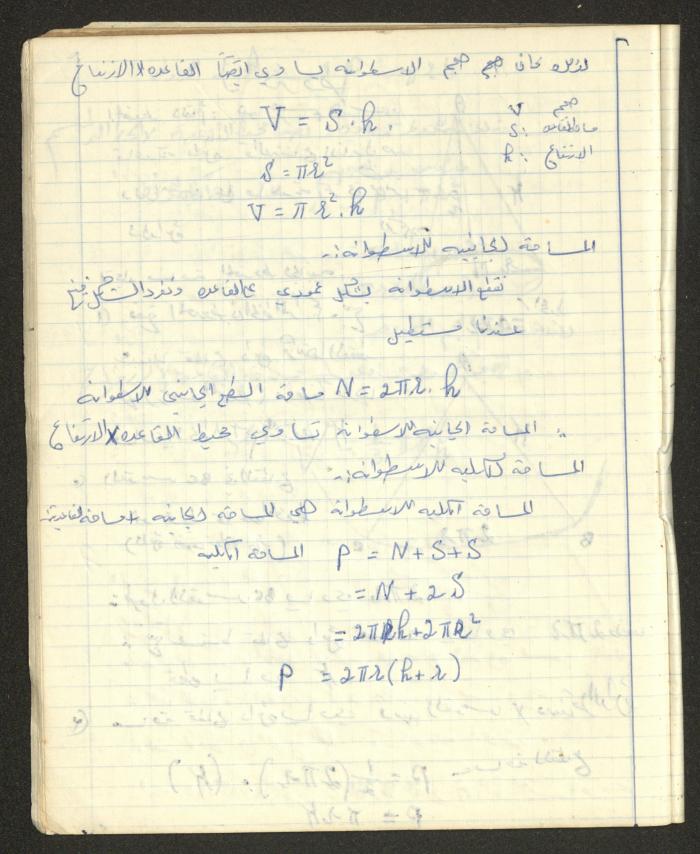 لذلك فان حجم الاسطوانه يساوي ايضاً القاعده X الارتفاع
V = S . h .
حجم V
S :
الارتفاع : h
S = πr²
V = πr² . h
المساحة الجانبيه للاسطوانه :-
نقطع الاسطوانه بشكل عمودي على القاعده ونفرد الشكل
عندنا مستطيل
N = 2πr . h مساحة السطح الجانبي للاسطوانه
∴ المساحة الجانبيه للاسطوانة تساوي محيط القاعده X الارتفاع
المساحة الكليه للاسطوانه :-
المساحة الكليه للاسطوانه هي المساحة الجانبيه + مساحة القاعدتين
P = N + S + S المساحة الكليه
= N + 2S
= 2πrh + 2πr²
P = 2πr (h + r)